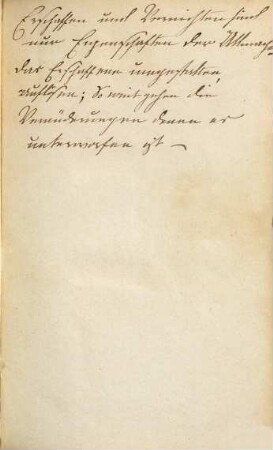 Erschaffen und Vernichten sind
nur Eigenschaften der Allmacht
das Erschaffene umgestalten,
auflösen; So weit gehen die
Veränderungen denen er
unterworfen ist —